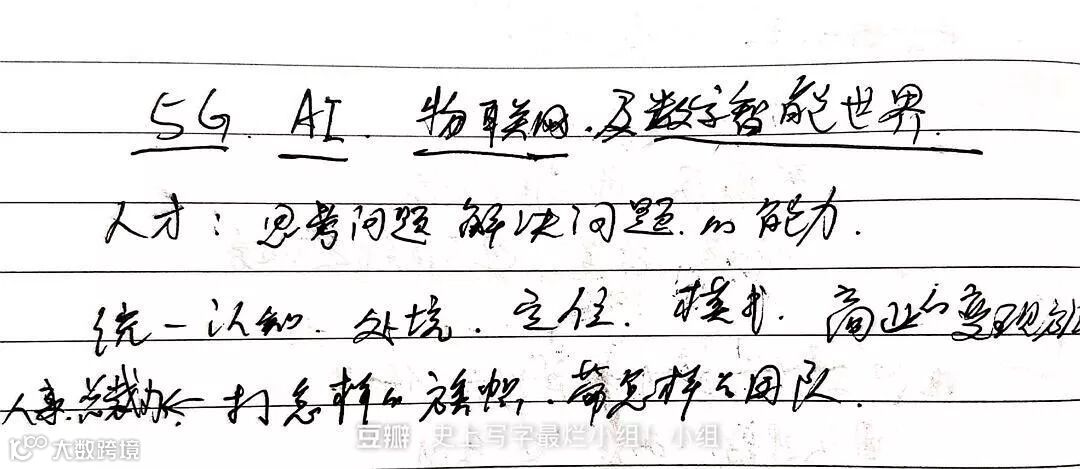 5G. AI. 物联网.及数字智能世界.
人才：思考问题 解决问题.的能力.
统一认知.处境.定位.模式.商业的变现
人事.总裁办 打怎样的旗帜.带怎样的团队.
豆瓣 史上写字最烂小组！小组
大数跨境